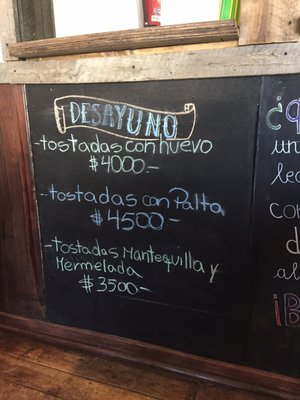 DESAYUNO
-tostadas con huevo
$4000.-
-tostadas con Palta
$4500.-
-tostadas Mantequilla y
Mermelada
$3500-